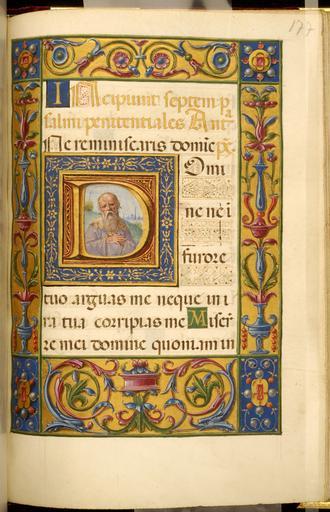 177
Incipiunt septem p
salmi penitentiales Ant
Ne reminiscaris domie ps
Domi
ne ne i
furore
tuo arguas me neque in i
ra tua corripias me Miser
re mei domine quoniam in